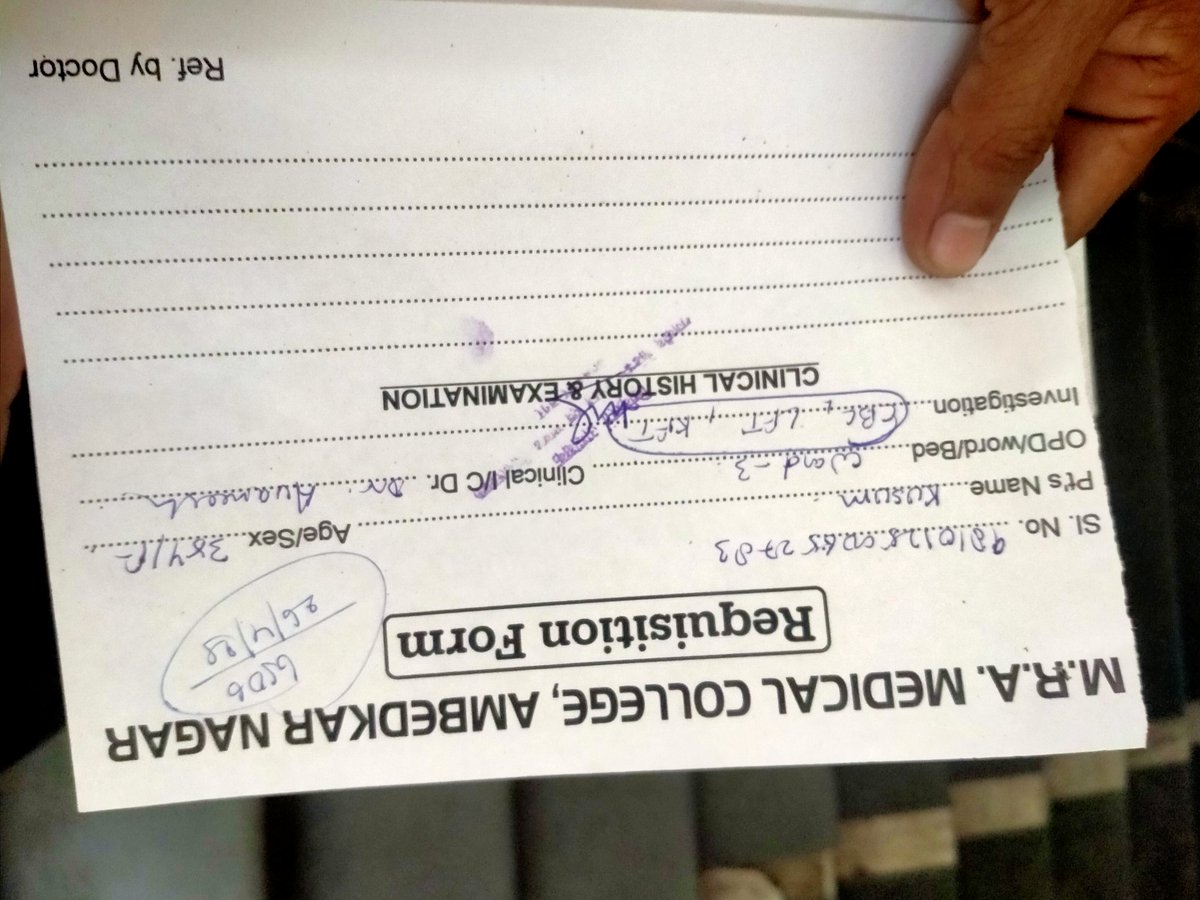 M.R.A. MEDICAL COLLEGE, AMBEDKAR NAGAR
Requisition Form
6506
26/4/28
Sl. No.
Pt's Name Kusum Age/Sex 38Y/F
OPD/word/Bed Ward-3 Clinical I/C Dr. Dr.
Investigation CBC, LFT, KFT
CLINICAL HISTORY & EXAMINATION
Ref. by Doctor